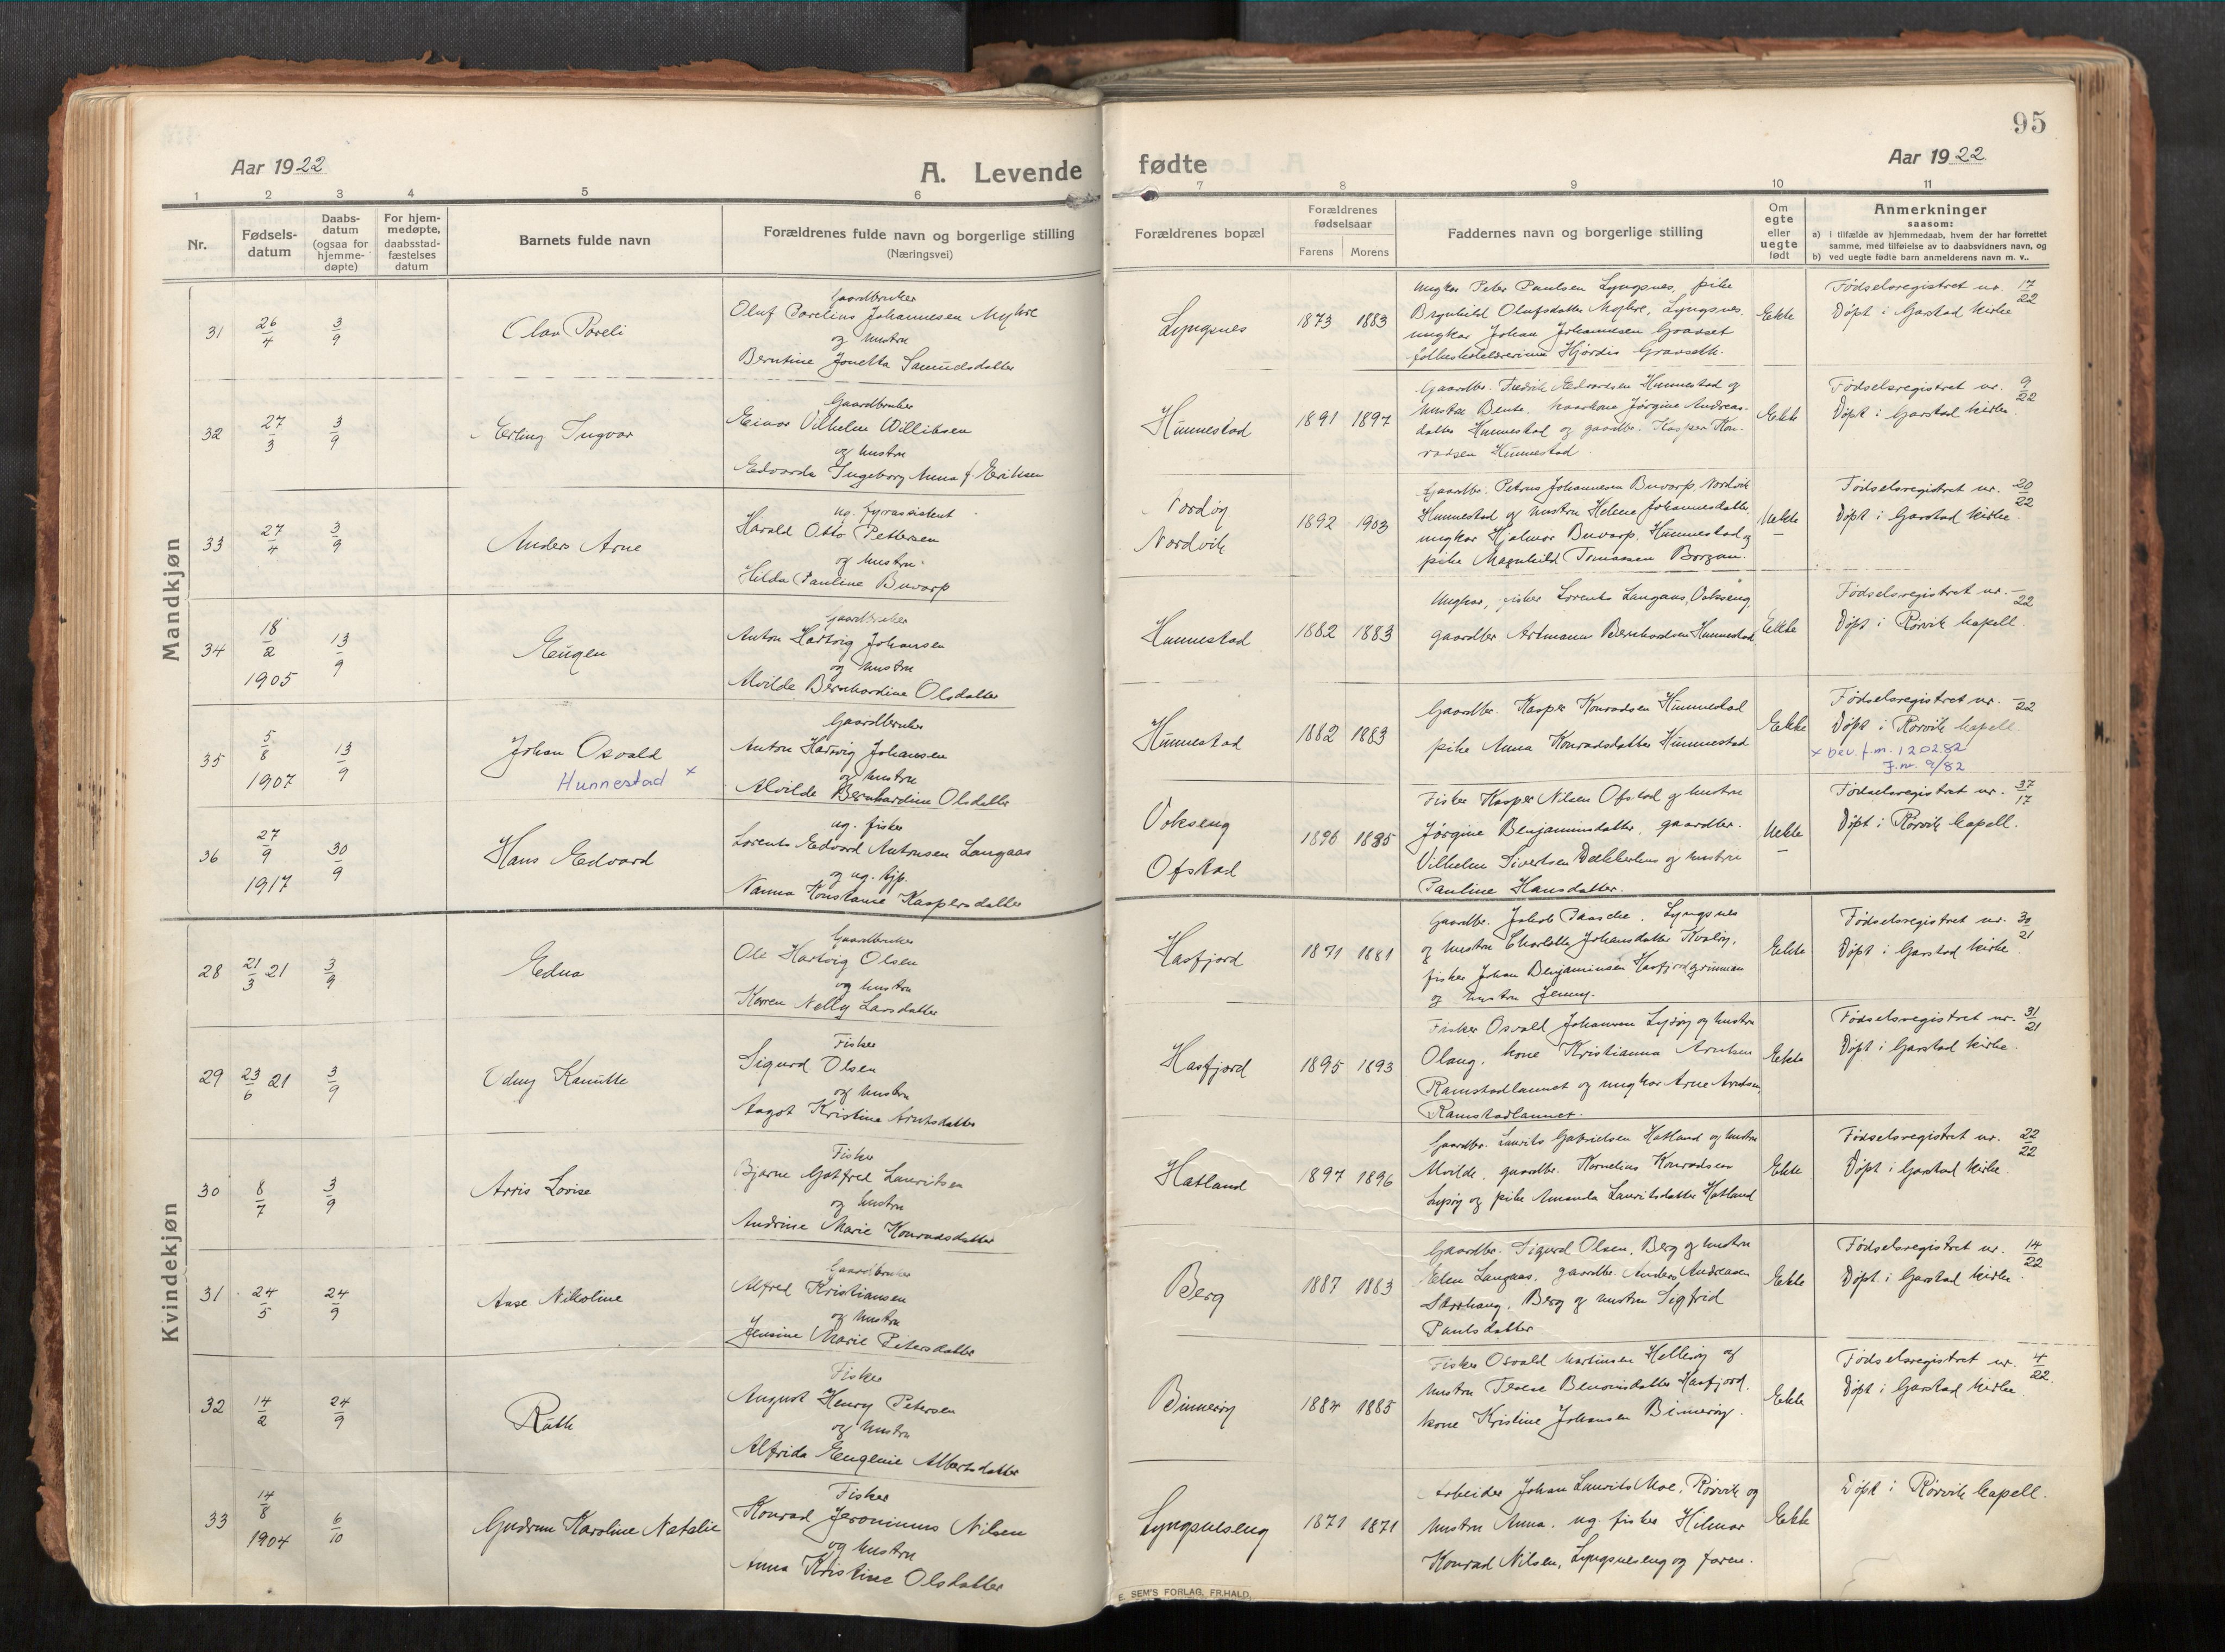 95
Aar 1922
A. Levende
fødte
Aar 1922
1 2 3 4 5 6 7 8 9 10 11
Nr.
Fødsels-
datum
Daabs-
datum
(ogsaa for
hjemme-
døpte)
For hjem-
medøpte,
daabsstad-
fæstelses
datum
Barnets fulde navn
Forældrenes fulde navn og borgerlige stilling
(Næringsvei)
Forældrenes bopæl
Forældrenes
fødselsaar
Farens Morens
Faddernes navn og borgerlige stilling
Om
egte
eller
uegte
født
Anmerkninger
saasom:
a) i tilfælde av hjemmedaab, hvem der har forrettet
samme, med tilføielse av to daabsvidners navn, og
b) ved uegte fødte barn anmelderens navn m. v..
Mandkjøn
31 26/4 3/9 Olav Poreli
Gaardbruker
Oluf Porelius Johannesen Myhre
og hustru
Berntine Jonetta Samuelsdatter
Lyngsnes 1873 1883
Ungkar Peter Paulsen Lyngsnes, pike
Brynhild Olufsdatter Myhre, Lyngsnes,
ungkar Johan Johannesen Gravset
folkeskolelærerinne Hjørdis Gravseth.
Ekte
Fødselsregistret nr. 17/22
Døpt i Garstad kirke
32 27/3 3/9 Erling Ingvar
Gaardbruker
Einar Vilhelm Willibsen
og hustru
Edvarda Ingeborg Anna f. Eriksen
Hunnestad 1891 1897
Gaardbr. Fredrik Edvardsen Hunnestad og
hustru Bente, haarkone Jørgine Andreas-
datter Hunnestad og gaardbr. Kasper Kon-
radsen Hunnestad
Ekte
Fødselsregistret nr. 9/22
Døpt i Garstad kirke.
33 27/4 3/9 Anders Arne
ug. fyrassistent
Harald Otto Pettersen
og hustru
Hilda Pauline Buvarp
Nordøy
Nordvik
1892 1903
Gaardbr. Petrus Johannesen Buvarp, Nordvik
Hunnestad og hustru Helene Johannesdatter,
ungkar Hjalmar Buvarp, Hunnestad og
pike Magnhild Tomassen Borgan.
Uekte
Fødselsregistret nr. 20/22
Døpt i Garstad kirke
34 18/2 1905 13/9 Eugen
Gaardbruker
Anton Hartvig Johansen
og hustru
Alvilde Bernhardine Olsdatter
Hunnestad 1882 1883
Ungkar, fisker Lorents Langaas, Vokseng,
gaardbr Artmann Bernhardsen Hunnestad
Ekte
Fødselsregistret nr. –/22
Døpt i Rørvik kapell
35 5/8 1907 13/9 Johan Osvald
Hunnestad ×
Gaardbruker
Anton Hartvig Johansen
og hustru
Alvilde Bernhardine Olsdatter
Hunnestad 1882 1883
Gaardbr. Kasper Konradsen Hunnestad
pike Anna Konradsdatter Hunnestad
Ekte
Fødselsregistret nr. –/22
Døpt i Rørvik kapell
× bev. f.m. 120282
J.nr. 9/82
36 27/9 1917 30/9 Hans Edvard
ug. fisker
Lorents Edvard Antonsen Langaas
og ug. tjp.
Nanna Konstanse Kaspersdatter
Vokseng
Ofstad
1896 1895
Fisker Kasper Nilsen Ofstad og hustru
Jørgine Benjaminsdatter, gaardbr.
Vilhelm Sivertsen Dekkerhus og hustru
Pauline Hansdatter.
Uekte
Fødselsregistret nr. 37/17
Døpt i Rørvik kapell.
Kvindekjøn
28 21/3 21 3/9 Edna
Gaardbruker
Ole Hartvig Olsen
og hustru
Karen Nelly Larsdatter
Hasfjord 1871 1881
Gaardbr. Jakob Paasche, Lyngsnes
og hustru Charlotte Johansdatter Kvaløy,
fisker Johan Benjaminsen Hasfjordgrunnan
og hustru Jenny.
Ekte
Fødselsregistret nr. 30/21
Døpt i Garstad kirke
29 23/6 21 3/9 Odny Kanutte
Fisker
Sigurd Olsen
og hustru
Aagot Kristine Arntsdatter
Hasfjord 1895 1893
Fisker Osvald Johansen Lysøy og hustru
Olaug, kone Kristianna Arntsen
Ramstadlannet og ungkar Arne Arntsen,
Ramstadlannet.
Ekte
Fødselsregistret nr. 31/21
Døpt i Garstad kirke.
30 8/7 3/9 Arris Lovise
Fisker
Bjarne Gotfred Lauritsen
og hustru
Andrine Marie Konradsdatter
Hatland 1897 1896
Gaardbr. Laurits Gabrielsen Hatland og hustru
Alvilde, gaardbr. Kornelius Konradsen
Lysøy og pike Amanda Lauritsdatter Hatland
Ekte
Fødselsregistret nr. 22/22
Døpt i Garstad kirke.
31 24/5 24/9 Aase Nikoline
Gaardbruker
Alfred Kristiansen
og hustru
Jensine Marie Petersdatter
Berg 1887 1883
Gaardbr. Sigurd Olsen, Berg og hustru
Elen Langaas, gaardbr. Anders Andreasen
Storhaug, Berg og hustru Sigfrid
Paulsdatter
Ekte
Fødselsregistret nr. 14/22
Døpt i Garstad kirke.
32 14/2 24/9 Ruth
Fisker
August Henry Petersen
og hustru
Alfrida Eugenie Albertsdatter
Binnerøy 1884 1885
Fisker Osvald Martinsen Hellesøy og
hustru Terese Benoninsdatter Hasfjord,
kone Kristine Johansen Binnerøy.
Ekte
Fødselsregistret nr. 4/22.
Døpt i Garstad kirke
33 14/8 1904 6/10 Gudrun Karoline Natalie
Fisker
Konrad Jeronimus Nilsen
og hustru
Anna Kristine Olsdatter
Lyngsneseng 1871 1871
Arbeider Johan Laurits Moe, Rørvik og
hustru Anna, ug. fisker Hilmar
Konrad Nilsen, Lyngsneseng og faren.
Ekte
Døpt i Rørvik kapell.
E. SEM'S FORLAG, FR.HALD.